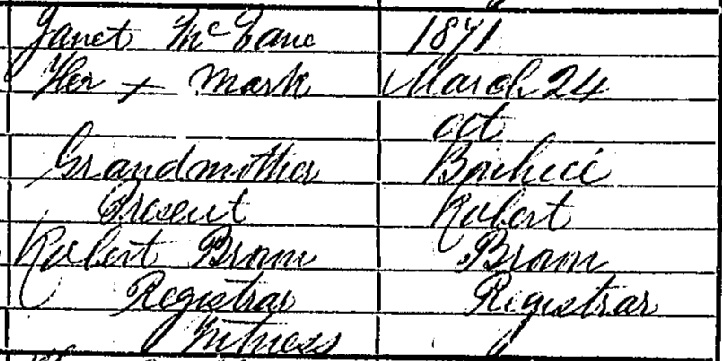 Janet McEane
Her x Mark
Grandmother
Present
Robert Brown
Registrar
Witness
1871
March 24
at
Robert
Brown
Registrar